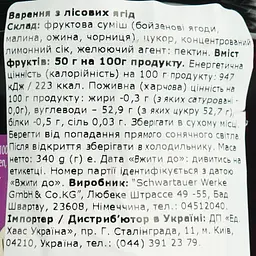 Варення з лісових ягід
Склад: фруктова суміш (бойзенові ягоди,
малина, ожина, чорниця), цукор, концентрований
лимонний сік, желюючий агент: пектин. Вміст
фруктів: 50 г на 100г продукту. Енергетична
цінність (калорійність) на 100 г продукту: 947
кДж / 223 ккал. Поживна (харчова) цінність на
100 г продукту: жири -0,3 г (з яких сатуровані -
0,0г), вуглеводи – 52,9 г (з яких цукру 52,7 г),
білки -0,5 г, сіль 0,03 г. Зберігати в сухому місці.
Берегти від попадання прямого сонячного світла.
Після відкриття зберігати в холодильнику. Маса
нетто: 340 g (г) e. Дата «Вжити до»: дивитись на
етикетці. Номер партії ідентифікується з датою
«Вжити до». Виробник: "Schwartauer Werke
GmbH & Co.KG", Любеке Штрассе 49 -55, Бад
Швартау, 23608, Німеччина, тел.: 04512040.
Імпортер / Дистриб’ютор в Україні: ДП «Ед.
Хаас Україна», пр. Г. Сталінграда, 11, м. Київ,
04210, Україна, тел.: (044) 391 23 79.